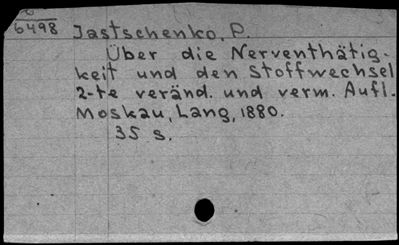 6498
Jastschenko, P.
Über die Nerventhätig-
keit und den Stoffwechsel
2-te veränd. und verm. Aufl.
Moskau, Lang, 1880.
35 s.